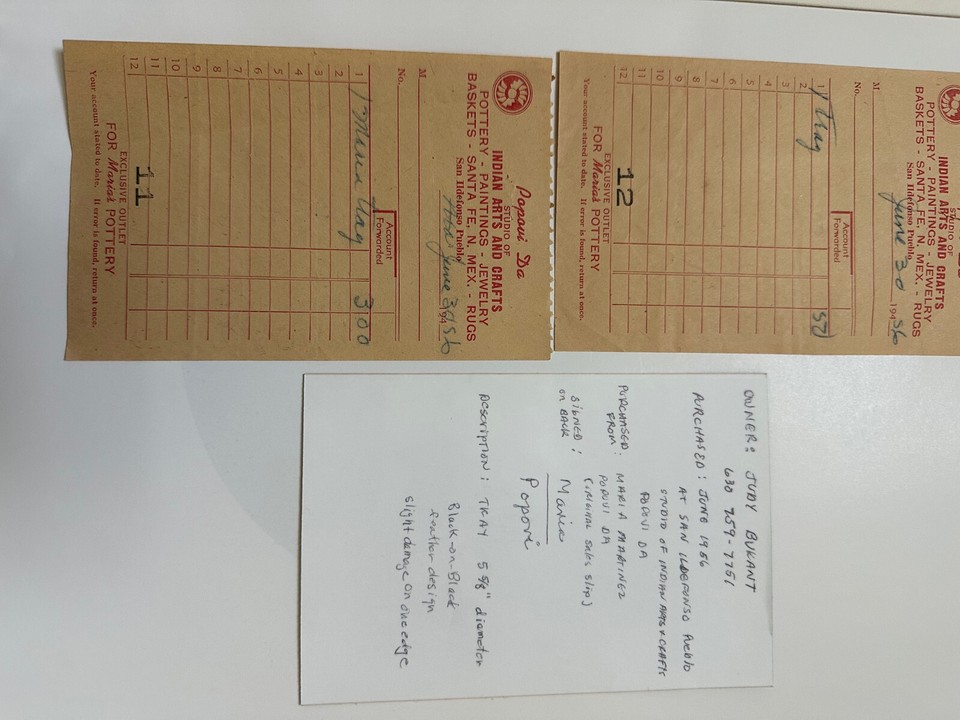 STUDIO OF
INDIAN ARTS AND CRAFTS
POTTERY - PAINTINGS - JEWELRY
BASKETS - SANTA FE, N. MEX. - RUGS
San Ildefonso Pueblo
June 30 194 56
M
No.
Account
Forwarded
1 1 Tray
2
3
4
5
6
7
8
9
10
11
12
12
EXCLUSIVE OUTLET
FOR Maria's POTTERY
Your account stated to date. If error is found, return at once.
Popovi Da
STUDIO OF
INDIAN ARTS AND CRAFTS
POTTERY - PAINTINGS - JEWELRY
BASKETS - SANTA FE, N. MEX. - RUGS
San Ildefonso Pueblo
June 30 56 194
M
No.
Account
Forwarded
1 1 Maria tray 3 00
2
3
4
5
6
7
8
9
10
11
12
11
EXCLUSIVE OUTLET
FOR Maria's POTTERY
Your account stated to date. If error is found, return at once.
OWNER: JUDY BUKANT
630 759-7751
PURCHASED: JUNE 1956
AT SAN ILDEFONSO Pueblo
STUDIO OF INDIAN ARTS & CRAFTS
POPOVI DA
PURCHASED FROM: MARIA MARTINEZ
POPOVI DA
(original sales slip)
SIGNED on BACK: Maria
Popovi
DESCRIPTION: TRAY 5 5/8" diameter
Black-on-Black
feather design
slight damage on one edge